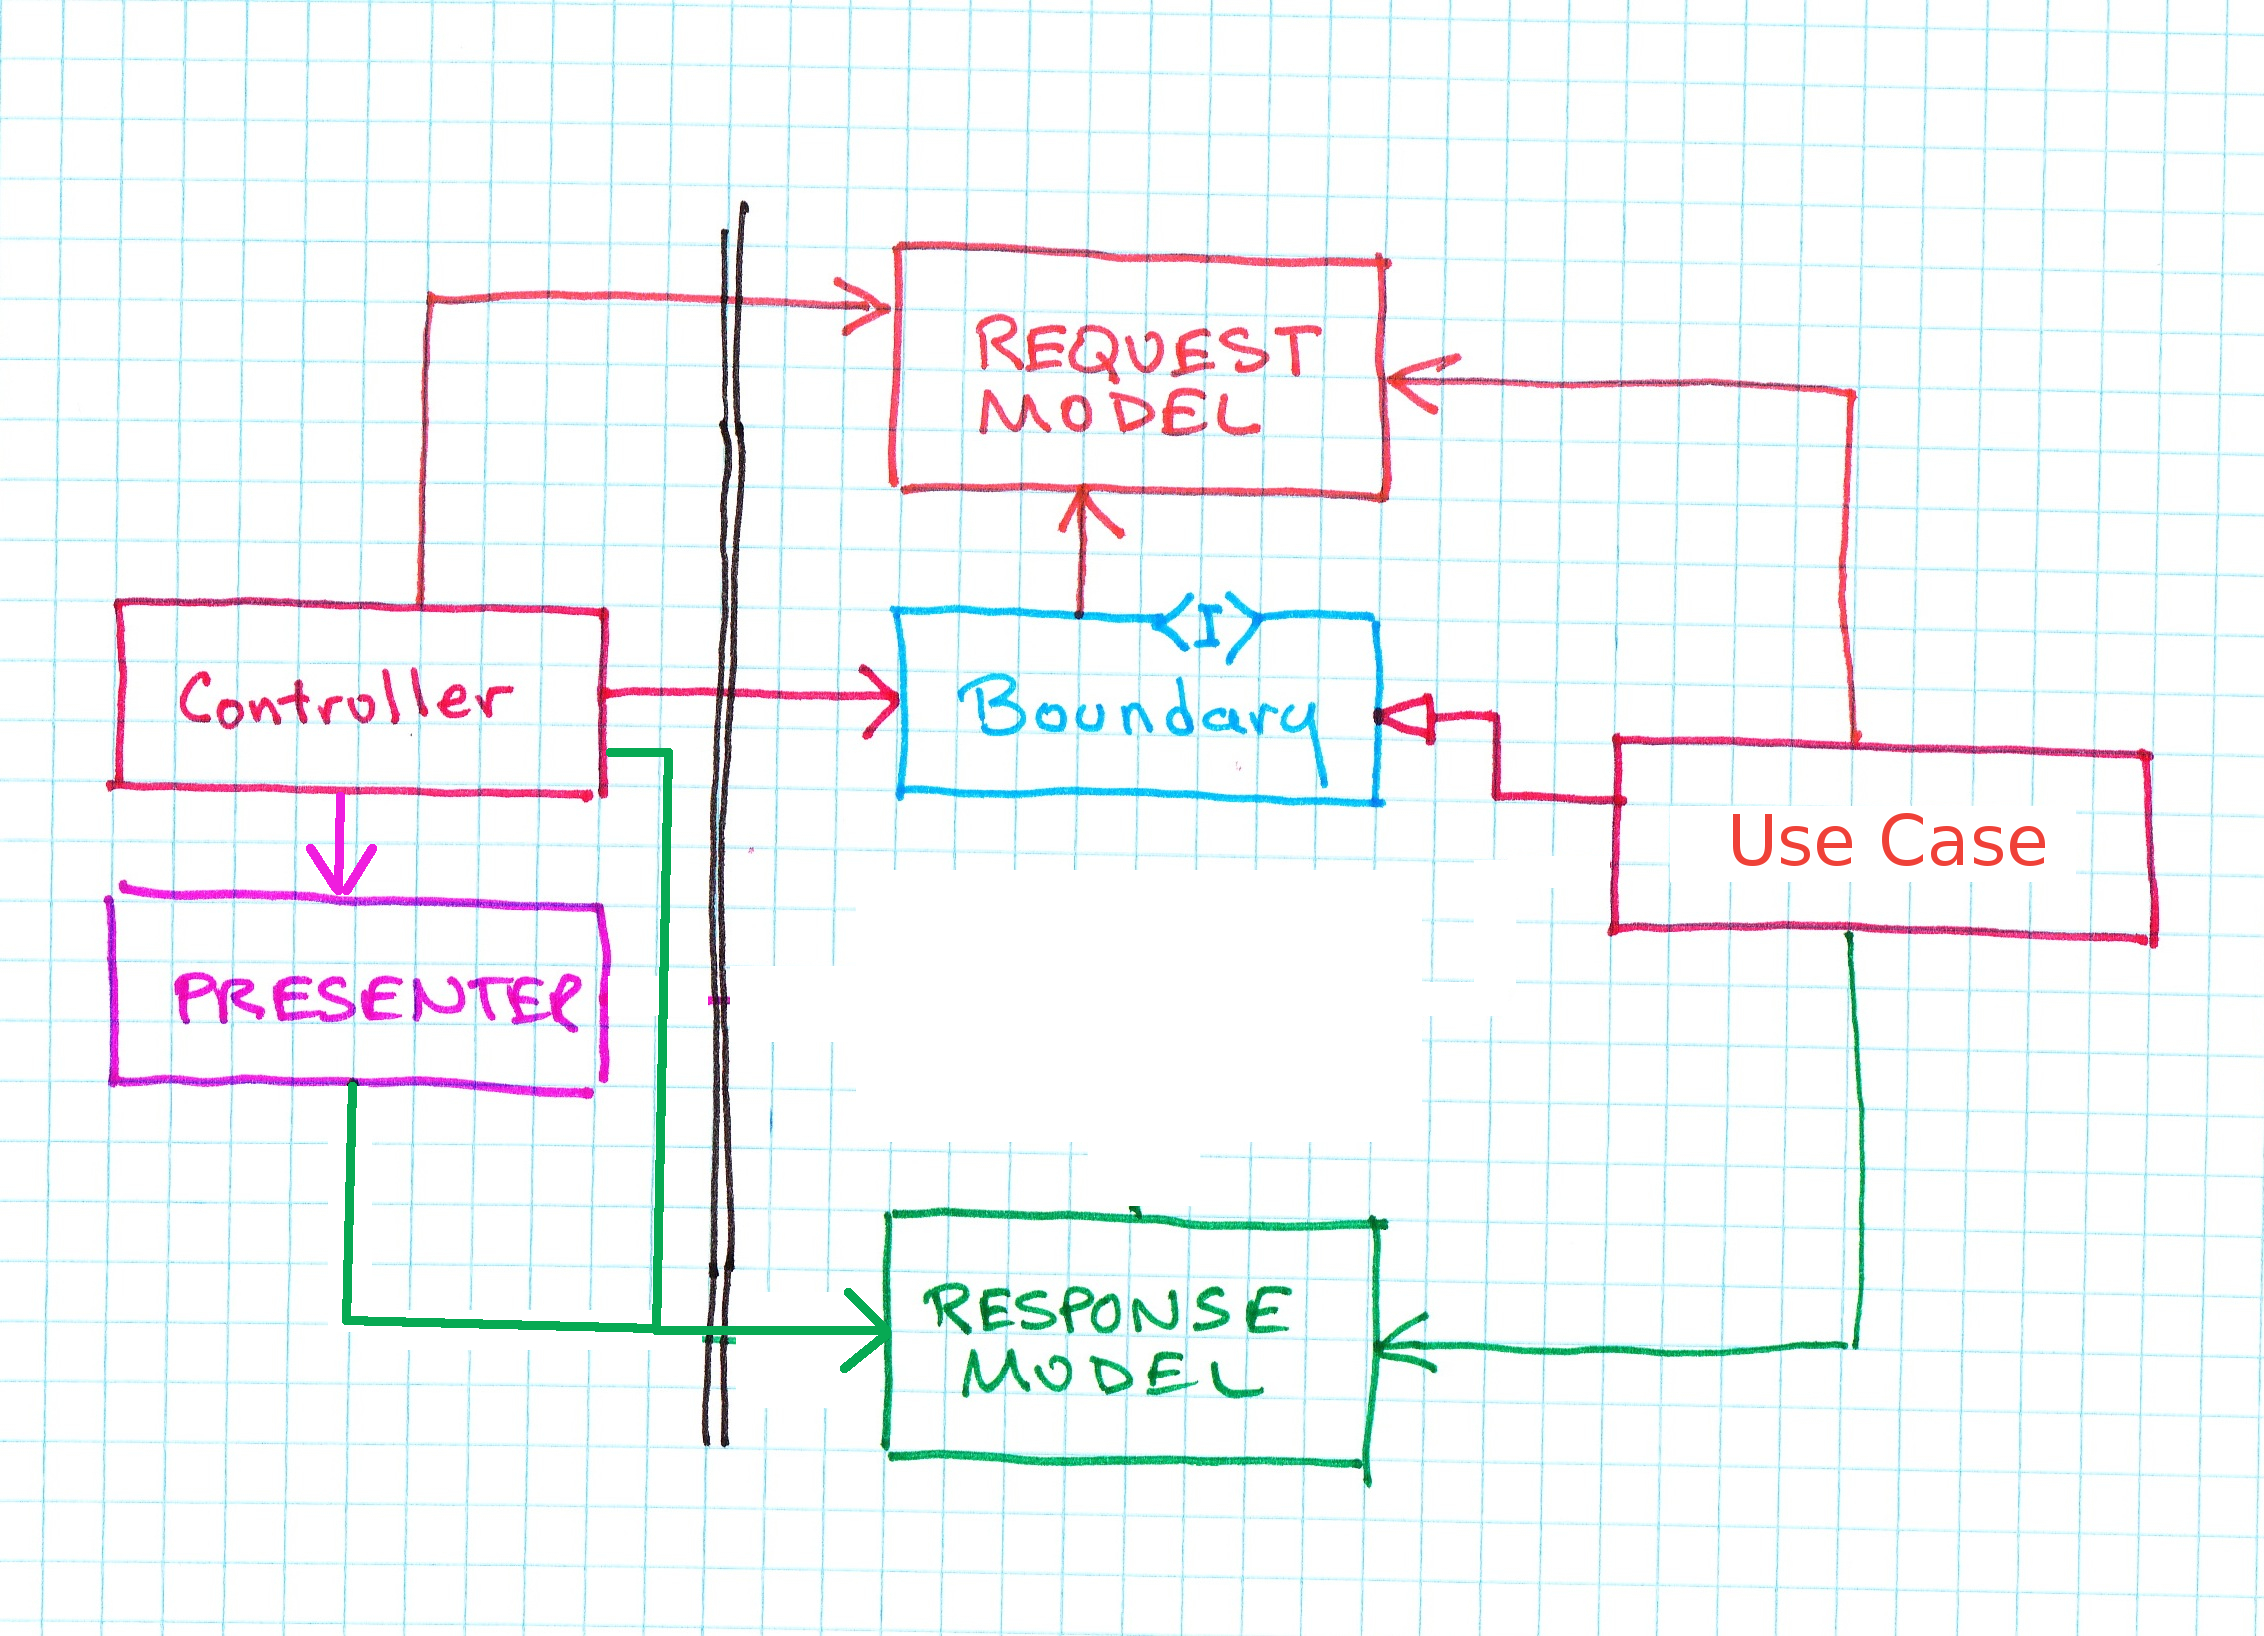 REQUEST
MODEL
<I>
Controller
Boundary
Use Case
PRESENTER
RESPONSE
MODEL